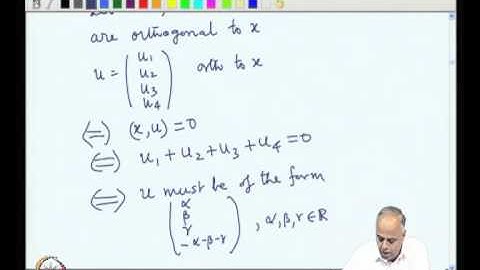 are orthogonal to x
u = (u₁ u₂ u₃ u₄) orth to x
⇔ (x, u) = 0
⇔ u₁ + u₂ + u₃ + u₄ = 0
⇔ u must be of the form
(α β γ -α-β-γ), α, β, γ ∈ ℝ